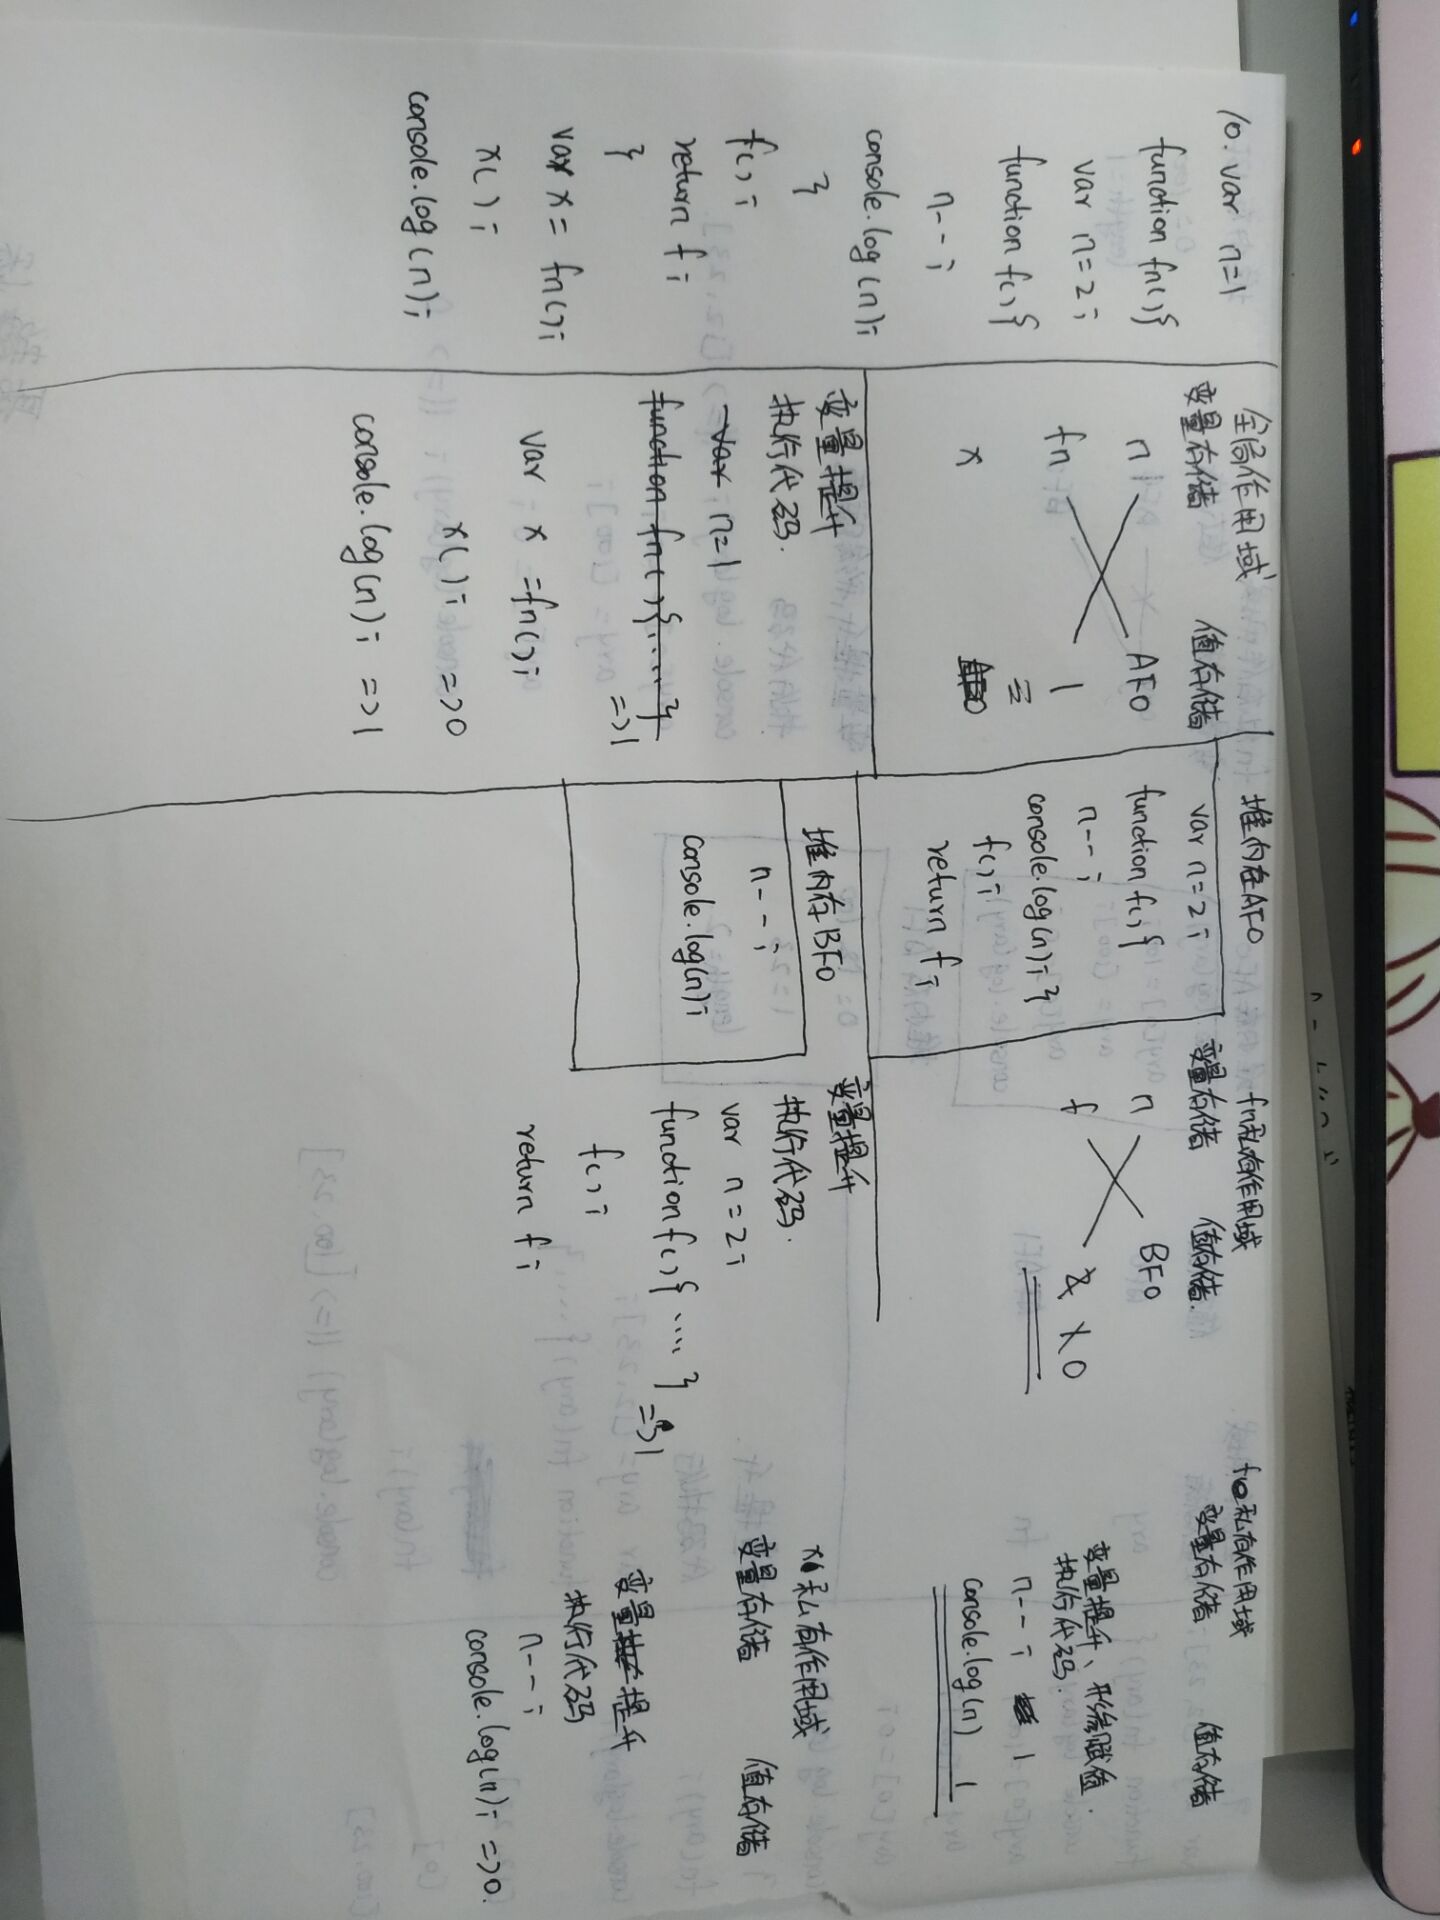 10. var n=1
function fn(){
var n=2;
function f(){
n--;
console.log(n);
}
f();
return f;
}
var x= fn();
x();
console.log(n);
全局作用域
变量存储 值存储
n AFO
fn 1
x
变量提升
执行代码.
var n=1
function fn(){....}
=>1
var x =fn();
x(); =>0
console.log(n); =>1
堆内存AFO
var n=2;
function f(){
n--;
console.log(n); }
f();
return f;
堆内存BFO
n--;
console.log(n);
fn私有作用域
变量存储 值存储.
n BFO
f 2 1 0
变量提升
执行代码.
var n=2;
function f(){ .... }
f(); =>1
return f;
f私有作用域
变量存储 值存储
变量提升、形参赋值.
执行代码.
n--; 1
console.log(n) 1
x私有作用域
变量存储 值存储
变量提升
执行代码
n--;
console.log(n); =>0.